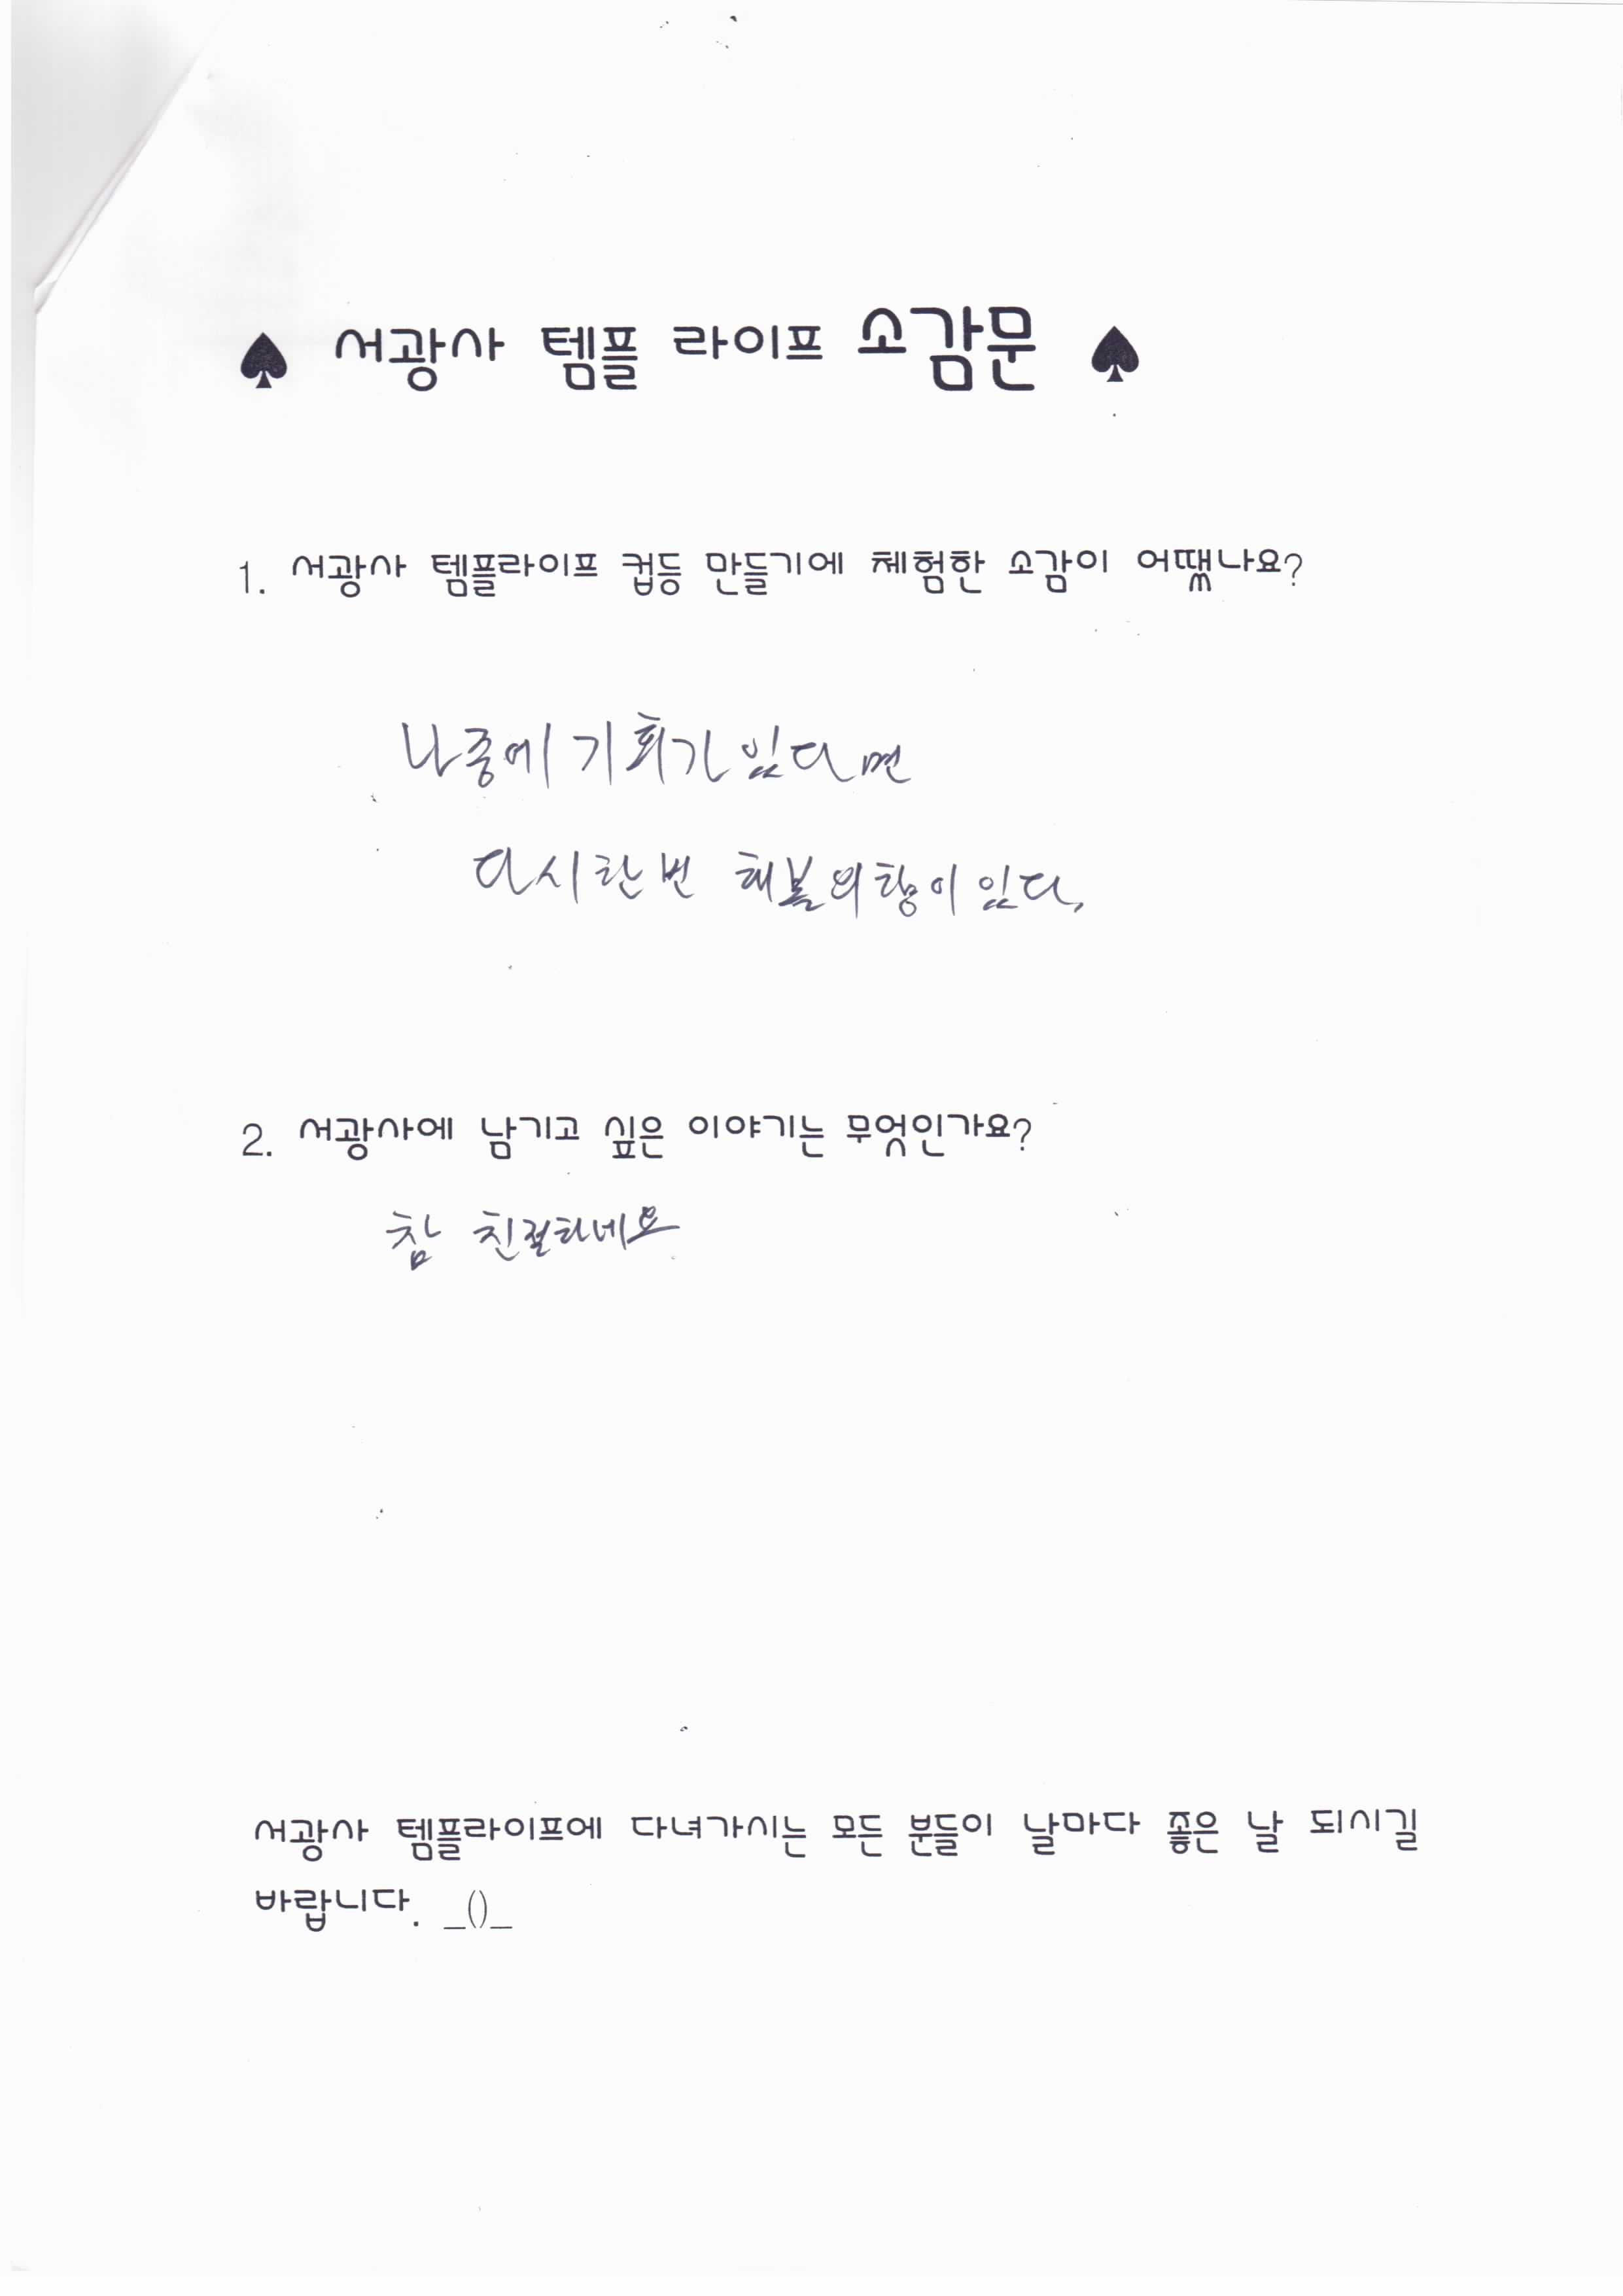 ♠ 서광사 템플 라이프 소감문 ♠
1. 서광사 템플라이프 컵등 만들기에 체험한 소감이 어땠나요?
나중에 기회가 있다면
다시한번 해볼의향이 있다.
2. 서광사에 남기고 싶은 이야기는 무엇인가요?
참 친절하네요
서광사 템플라이프에 다녀가시는 모든 분들이 날마다 좋은 날 되시길
바랍니다. _()_